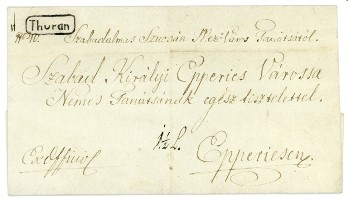 Thuran
No 10. Szabadalmas Szucsán Mező Város Tanátsától.
Szabad Királyi Epperies Várossa
Nemes Tanátsának egész tisztelettel.
1½ L.
Ex Officio
Epperiesen.